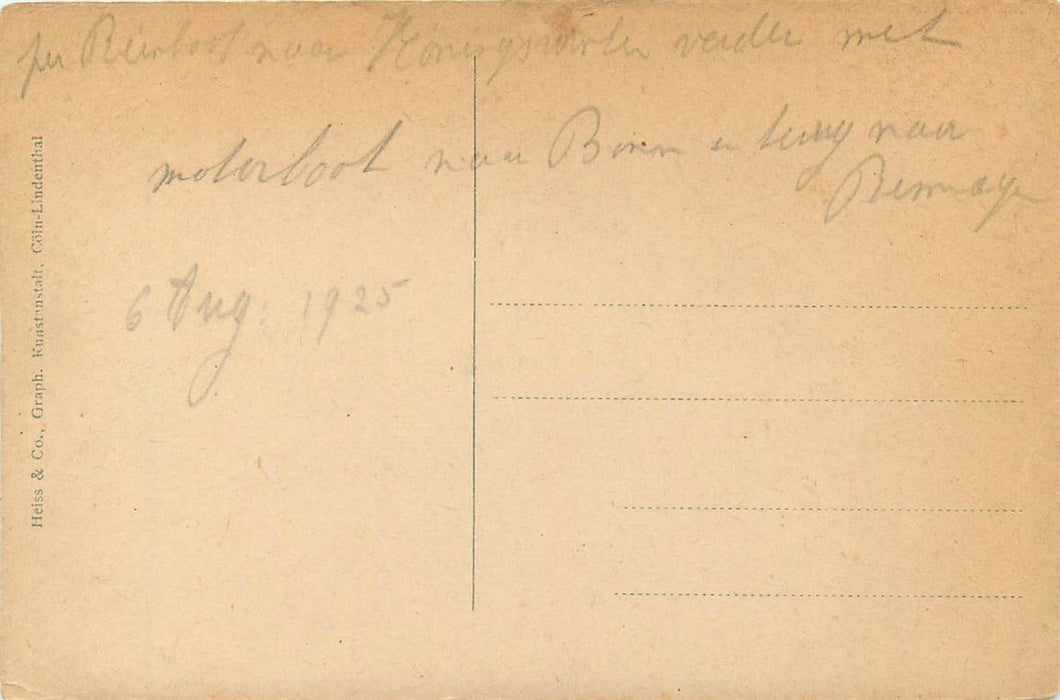 per Rijnboot naar Königswinter verder met
motorboot naar Bonn en terug naar
Remagen
6 Aug. 1925
Heiss & Co., Graph. Kunstanstalt, Cöln-Lindenthal